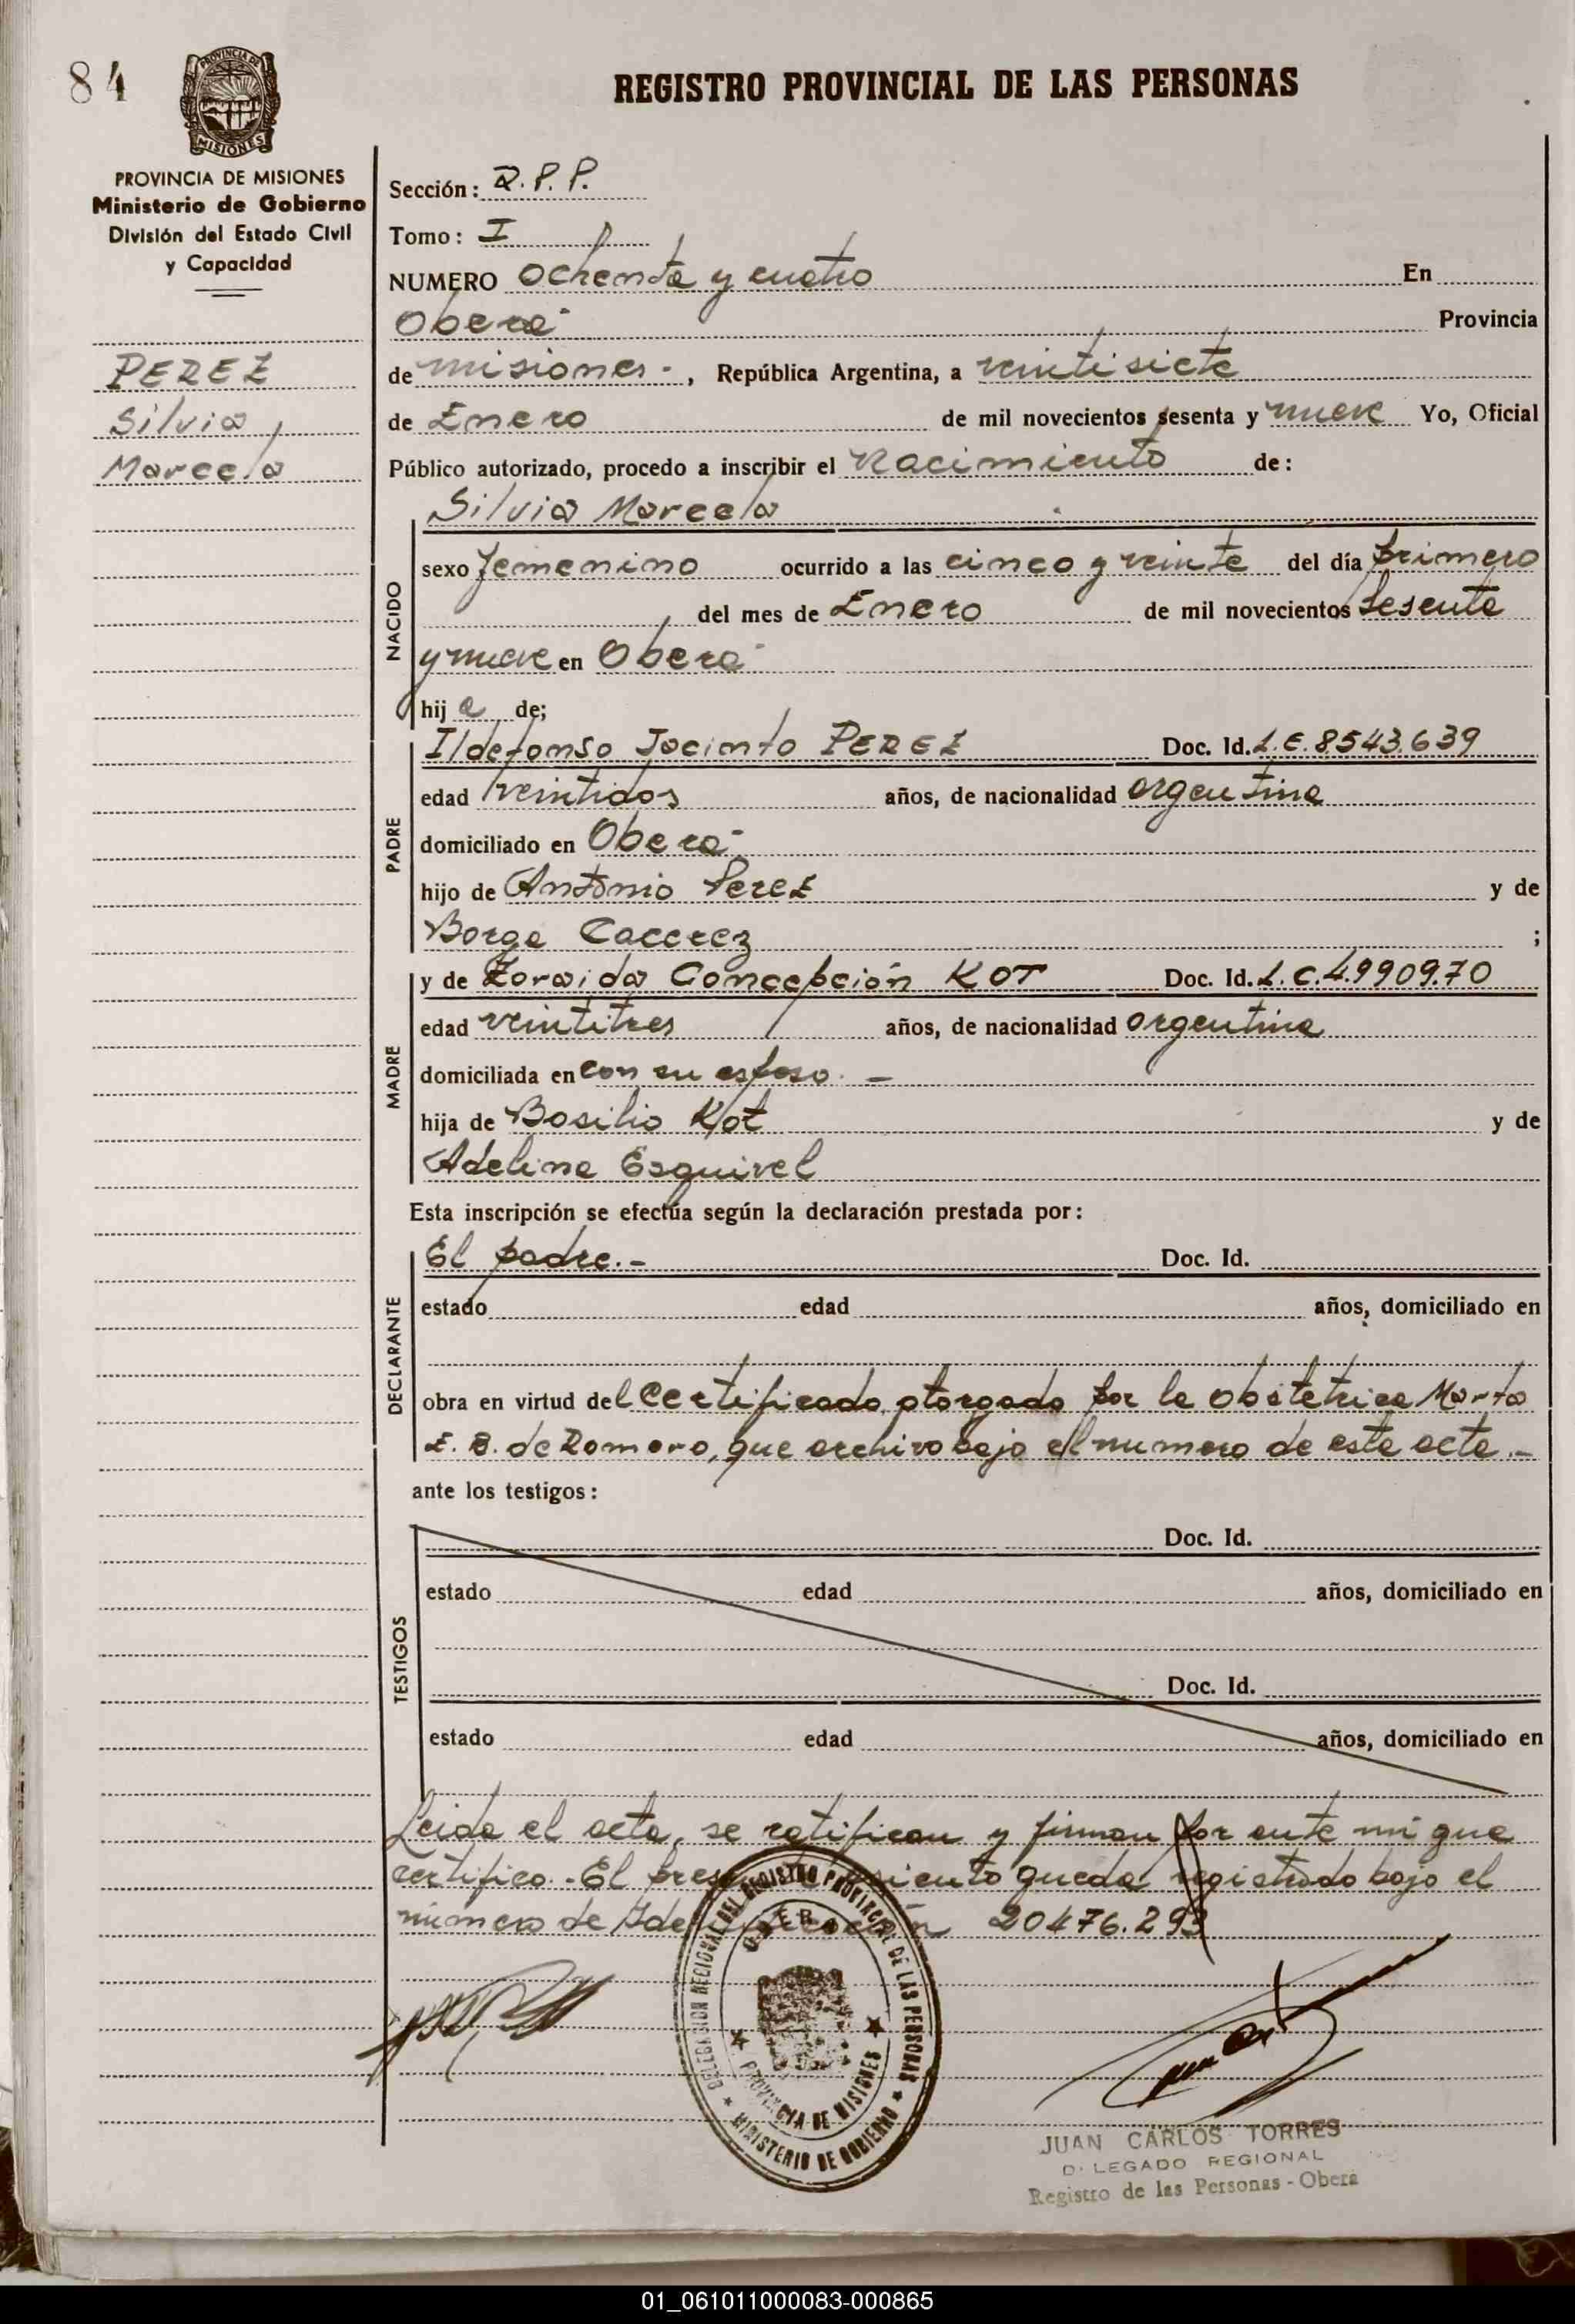 84
PROVINCIA DE
MISIONES
REGISTRO PROVINCIAL DE LAS PERSONAS
PROVINCIA DE MISIONES
Ministerio de Gobierno
División del Estado Civil
y Capacidad
PEREZ
Silvia
Marcela
Sección: R.P.P.
Tomo: I
NUMERO Ochenta y cuatro En
Oberá
Provincia
de Misiones.-, República Argentina, a veintisiete
de Enero de mil novecientos sesenta y nueve Yo, Oficial
Público autorizado, procedo a inscribir el Nacimiento de:
Silvia Marcela
NACIDO
sexo femenino ocurrido a las cinco y veinte del día primero
del mes de Enero de mil novecientos sesenta
y nueve en Oberá
hij a de;
PADRE
Ildefonso Jacinto PEREZ Doc. Id. L.E.8543.639
edad veintidos años, de nacionalidad argentina
domiciliado en Oberá
hijo de Antonio Perez y de
Borga Cacerez ;
MADRE
y de Zoraida Concepción KOT Doc. Id. L.C.4.9909.70
edad veintitres años, de nacionalidad argentina
domiciliada en con su esposo. -
hija de Basilio Kot y de
Adelina Esquivel
Esta inscripción se efectúa según la declaración prestada por:
DECLARANTE
El padre.- Doc. Id.
estado edad años, domiciliado en
obra en virtud del Certificado otorgado por la obstetrica Marta
E. B. de Romero, que archivo bajo el numero de esta acta.-
ante los testigos:
TESTIGOS
Doc. Id.
estado edad años, domiciliado en
Doc. Id.
estado edad años, domiciliado en
Leida el acta, se ratifican y firman por ante mi que
certifico.- El presente asiento queda registrado bajo el
número de Identificación 20476.293
DELEGACION REGIONAL DEL REGISTRO PROVINCIAL DE LAS PERSONAS
OBERA
PROVINCIA DE MISIONES
MINISTERIO DE GOBIERNO
JUAN CARLOS TORRES
D. LEGADO REGIONAL
Registro de las Personas - Oberá
01_061011000083-000865